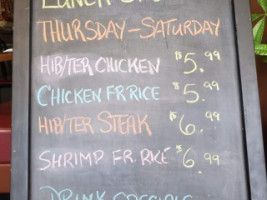 LUNCH
THURSDAY-SATURDAY
HIB/TER CHICKEN $5.99
CHICKEN FR RICE $5.99
HIB/TER STEAK $6.99
SHRIMP FR. RICE $6.99
DRINK SPECIALS